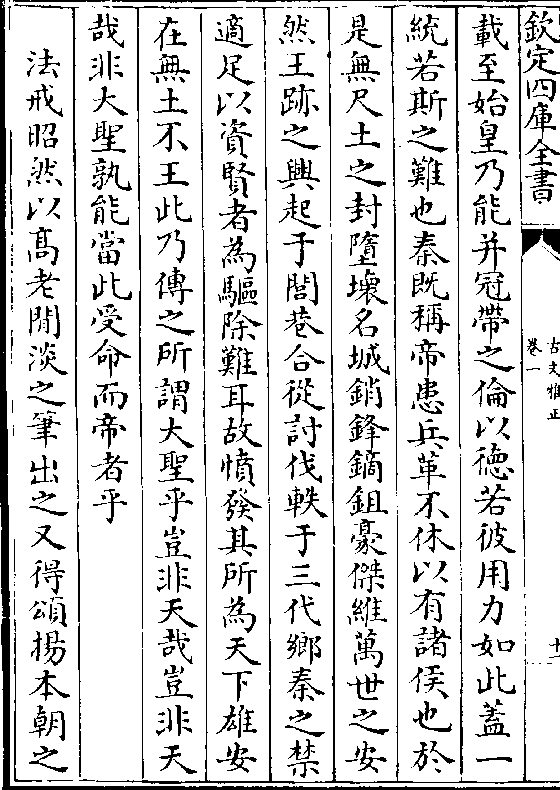 欽定四庫全書
古文雅正
卷一
十一
載至始皇乃能并冠帶之倫以徳若彼用力如此蓋一
統若斯之難也秦既稱帝患兵革不休以有諸侯也於
是無尺土之封墮壞名城銷鋒鏑鉏豪傑維萬世之安
然王跡之興起于閭巷合從討伐軼于三代鄉秦之禁
適足以資賢者為驅除難耳故憤發其所為天下雄安
在無土不王此乃傳之所謂大聖乎豈非天哉豈非天
哉非大聖孰能當此受命而帝者乎
法戒昭然以髙老閒淡之筆出之又得頌揚本朝之